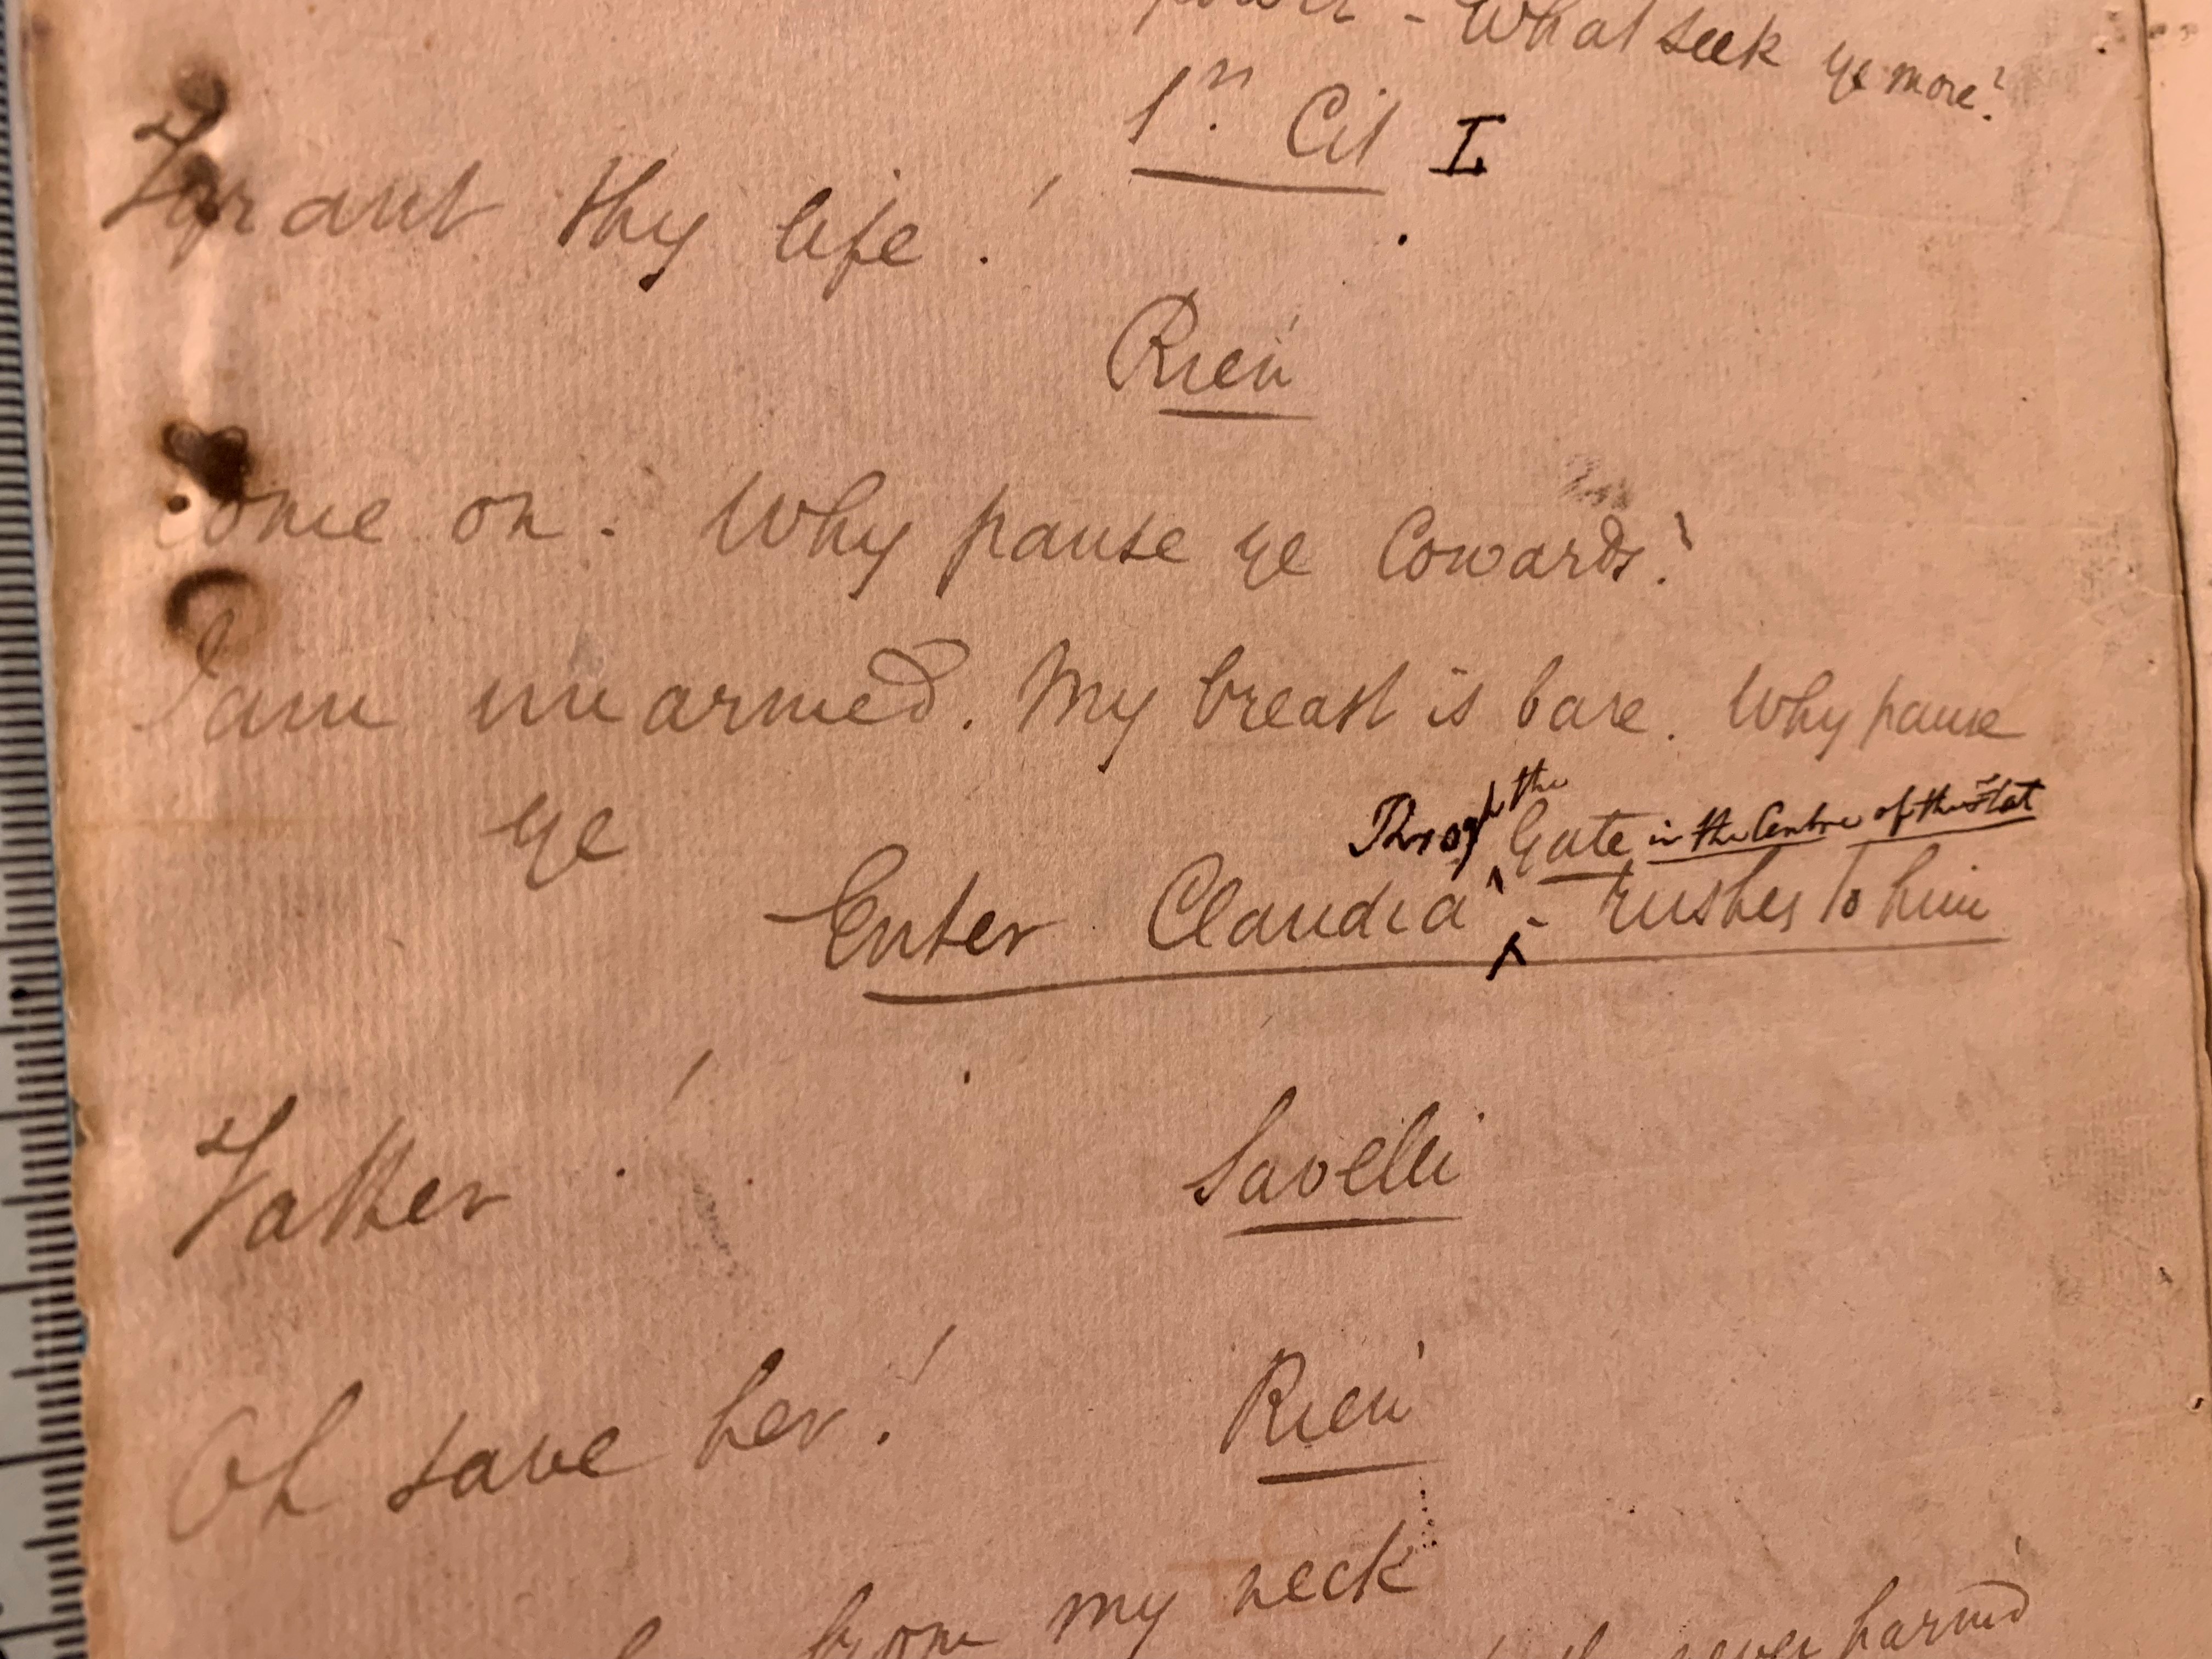 power - What seek ye more?
1st Cit I
Tyrant thy life!
Rien
Come on. Why pause ye Cowards?
I am unarmed. My breast is bare. Why pause
ye
Through the Gate in the Centre of the Flat
Enter Claudia - rushes to him
Father!
Savelli
Oh save her!
Rien
from my neck
never harmed